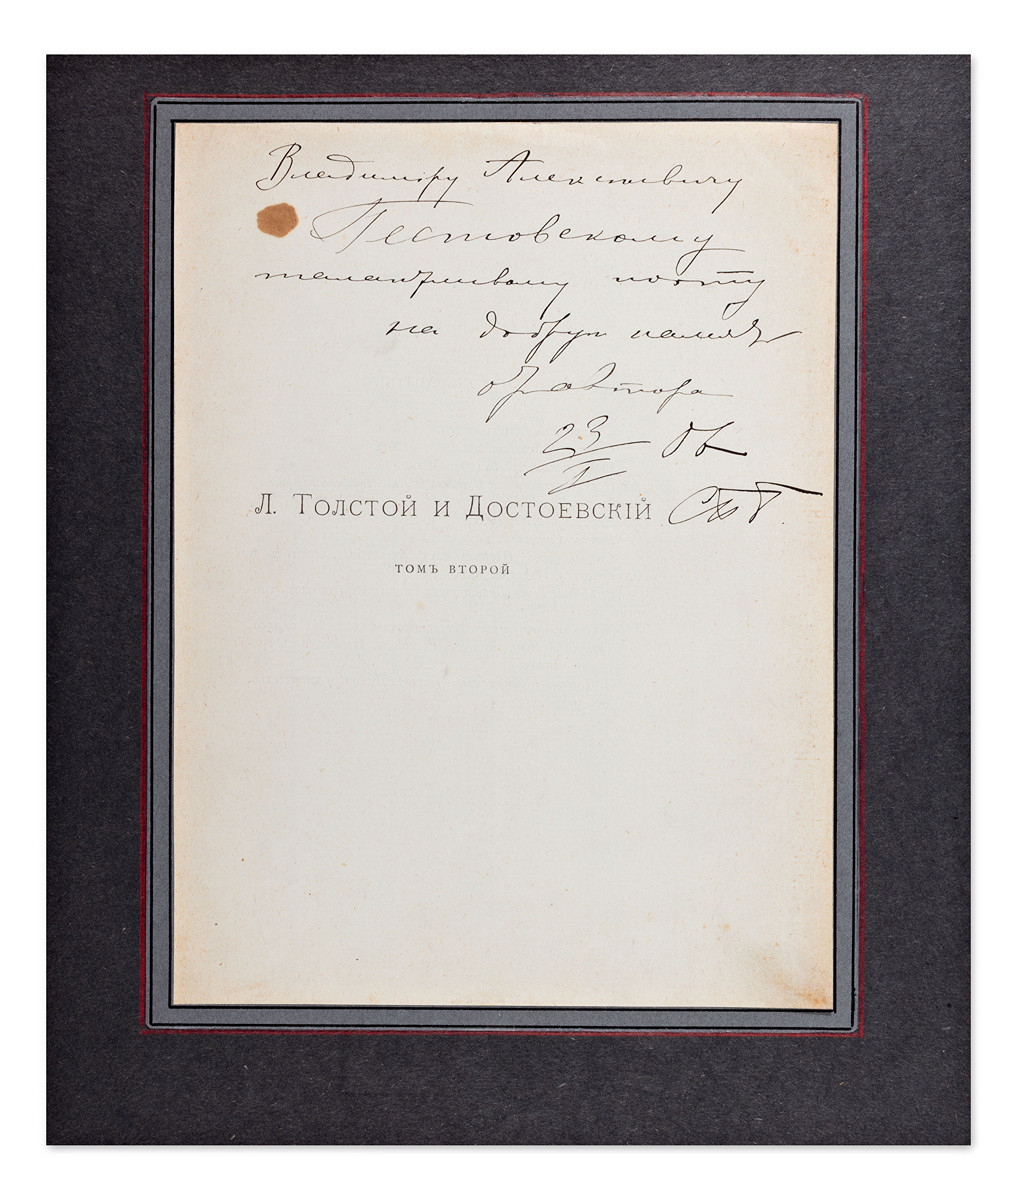 Владиміру Алексѣевичу
Пестовскому
талантливому поэту
на добрую память
от автора
23/V 06
СПб
Л. Толстой и Достоевскій
томъ второй